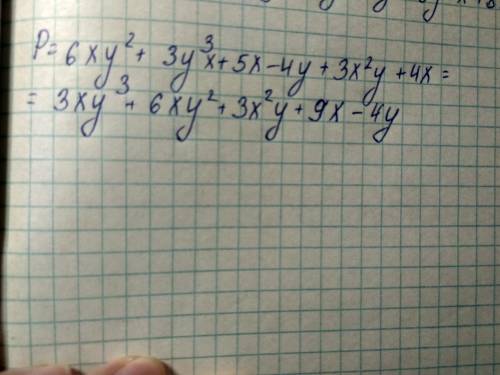 P = 6xy² + 3y³x + 5x - 4y + 3x²y + 4x =
= 3xy³ + 6xy² + 3x²y + 9x - 4y